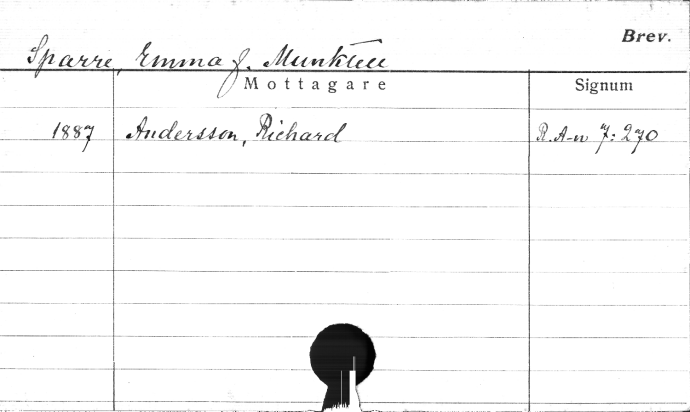 Brev.
Sparre, Emma f. Munktell
Mottagare Signum
1887 Andersson, Richard R. A-n 7: 270